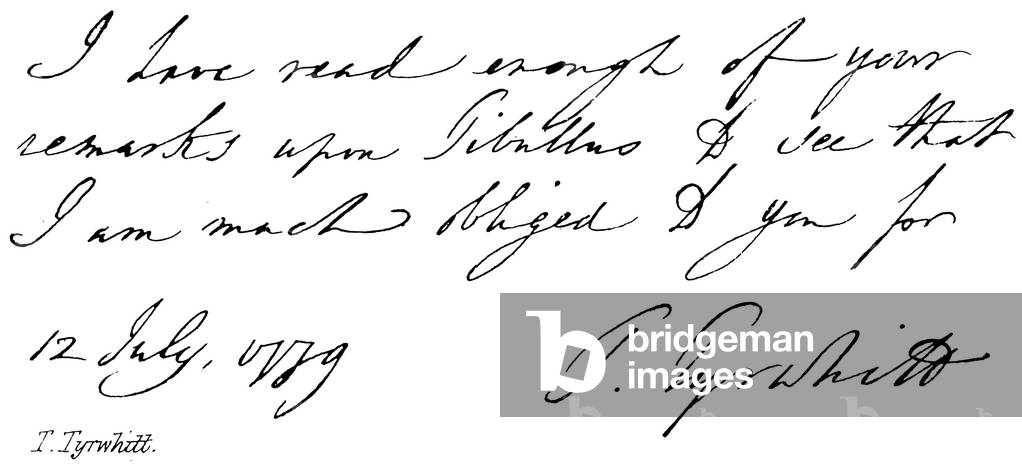 I have read enough of your
remarks upon Tibullus to see that
I am much obliged to you for
12 July, 1779
T. Tyrwhitt
bridgeman
images
T. Tyrwhitt.